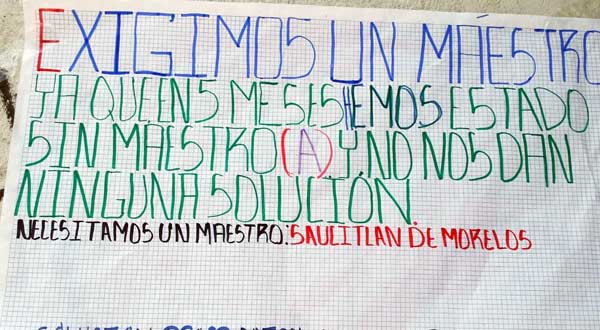 EXIGIMOS UN MAESTRO
YA QUE EN 5 MESES HEMOS ESTADO
SIN MAESTRO (A) Y NO NOS DAN
NINGUNA SOLUCIÓN.
NECESITAMOS UN MAESTRO: SAULITLAN DE MORELOS